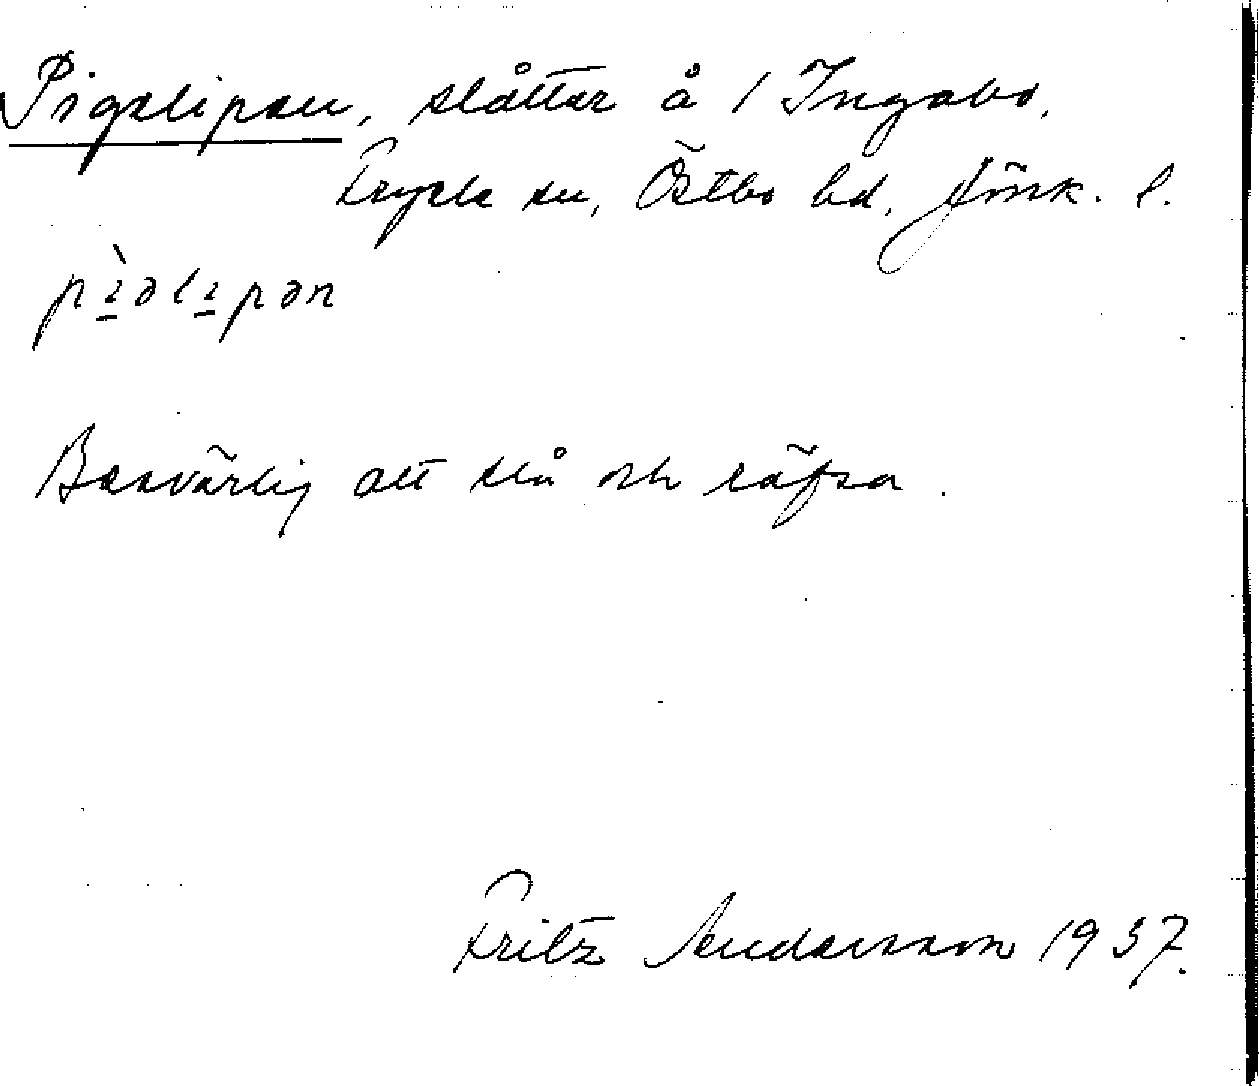 Pigelipen, slåtter å / Ingabo,
Fryele sn, Östbo hd, Jönk. l.
pìəlipən
Besvärlig att slå och räfsa.
Fritz Andersson 1937.